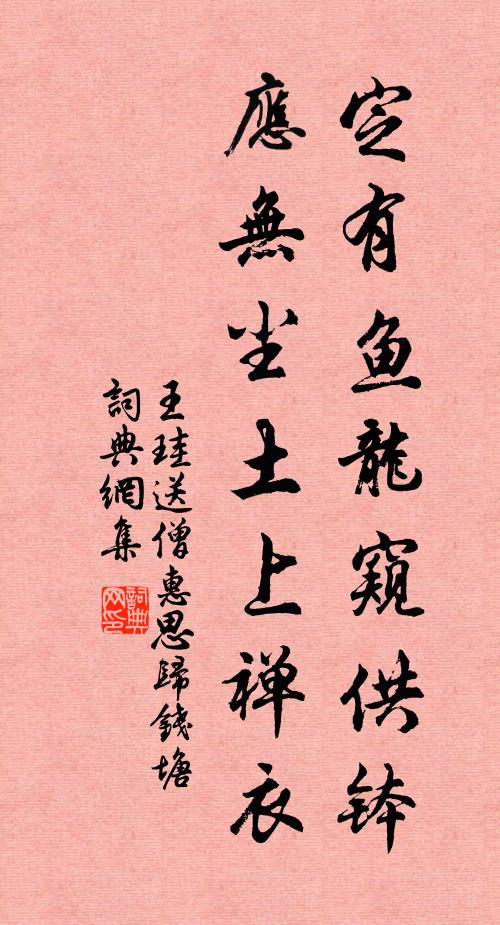 定有鱼龍窺供鉢
應無尘土上禅衣
王珪送僧惠思歸錢塘
詞典網集
詞典网印